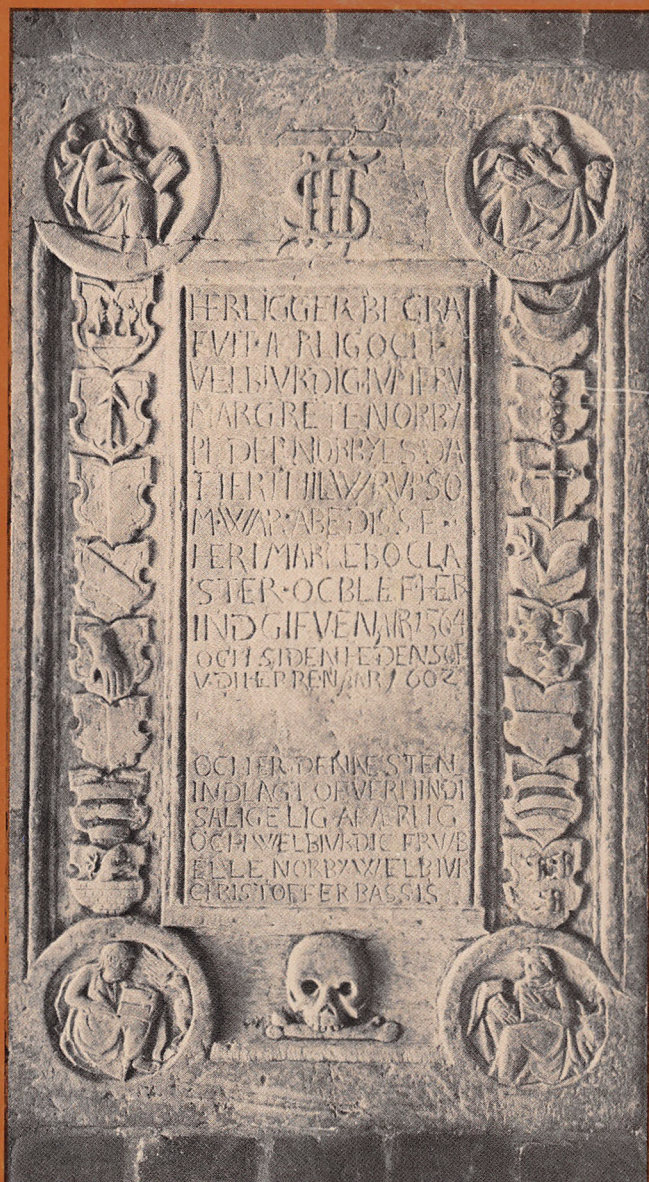 IHS
HER LIGGER BEGRA
FVIT · ÆRLIG OCH ·
VELBIVRDIG · IVMFRV
MARGRETE NORBY
PEDER NORBYES DA
TTER THIL W/RVP SO
M · WAR · ABEDISSE ·
HER I MARIEBO CLA
STER · OC BLEF HER
INDGIFVEN AAR 1564
OCH SIDEN
V · DI HERREN AAR 1602
OCH ER DENNE STEN
INDLAGT OFVER HINDI
SALIGE LIG AF ÆRLIG
OCH WELBIVRDIC FRV /B
ELLE NORBY WELBIVR
CHRISTOFFER BASSIS